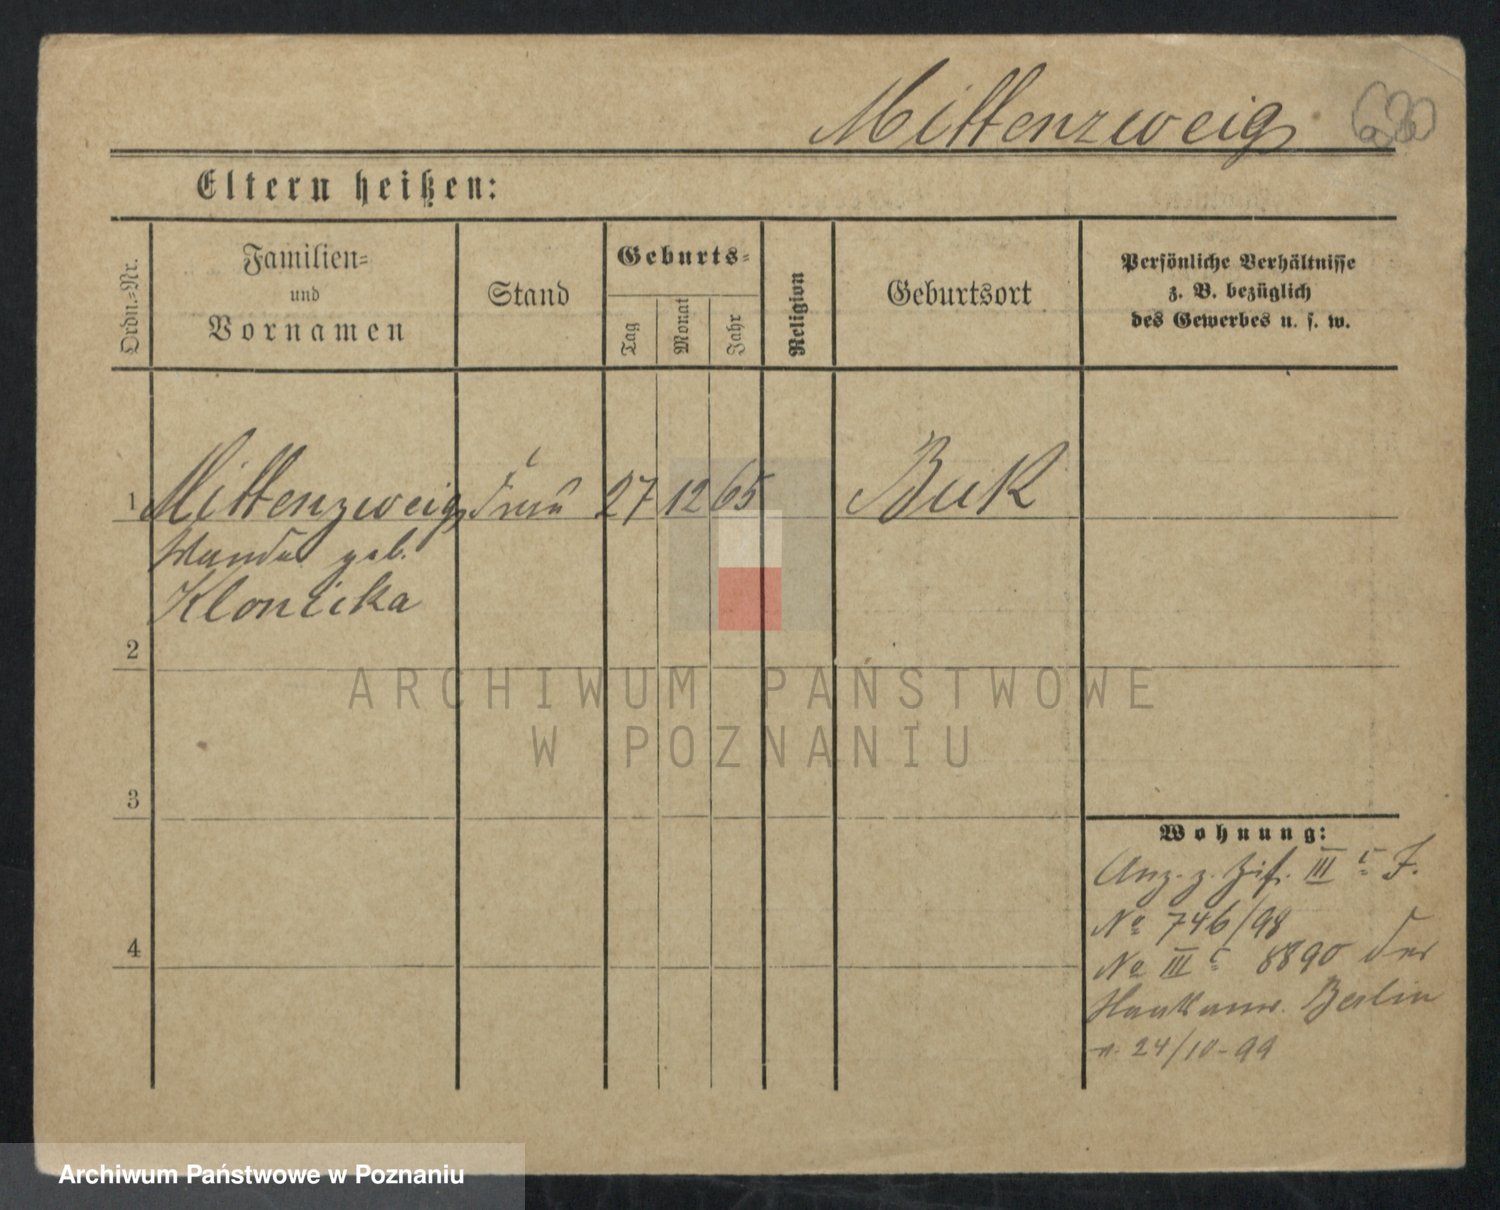 Mittenzweig
620
Eltern heißen:
Ordn.=Nr.
Familien=
und
Vornamen
Stand
Geburts=
Tag
Monat
Jahr
Religion
Geburtsort
Persönliche Verhältnisse
z. B. bezüglich
des Gewerbes u. s. w.
1 Mittenzweig Frau 27 12 65 Buk
Wanda geb.
Klonicka
2
ARCHIWUM PAŃSTWOWE
W POZNANIU
3
Wohnung:
Anz. z. Zif. III c F.
No 746/98
4
No III c 8890 der
Berlin
v. 24/10-99
Archiwum Państwowe w Poznaniu